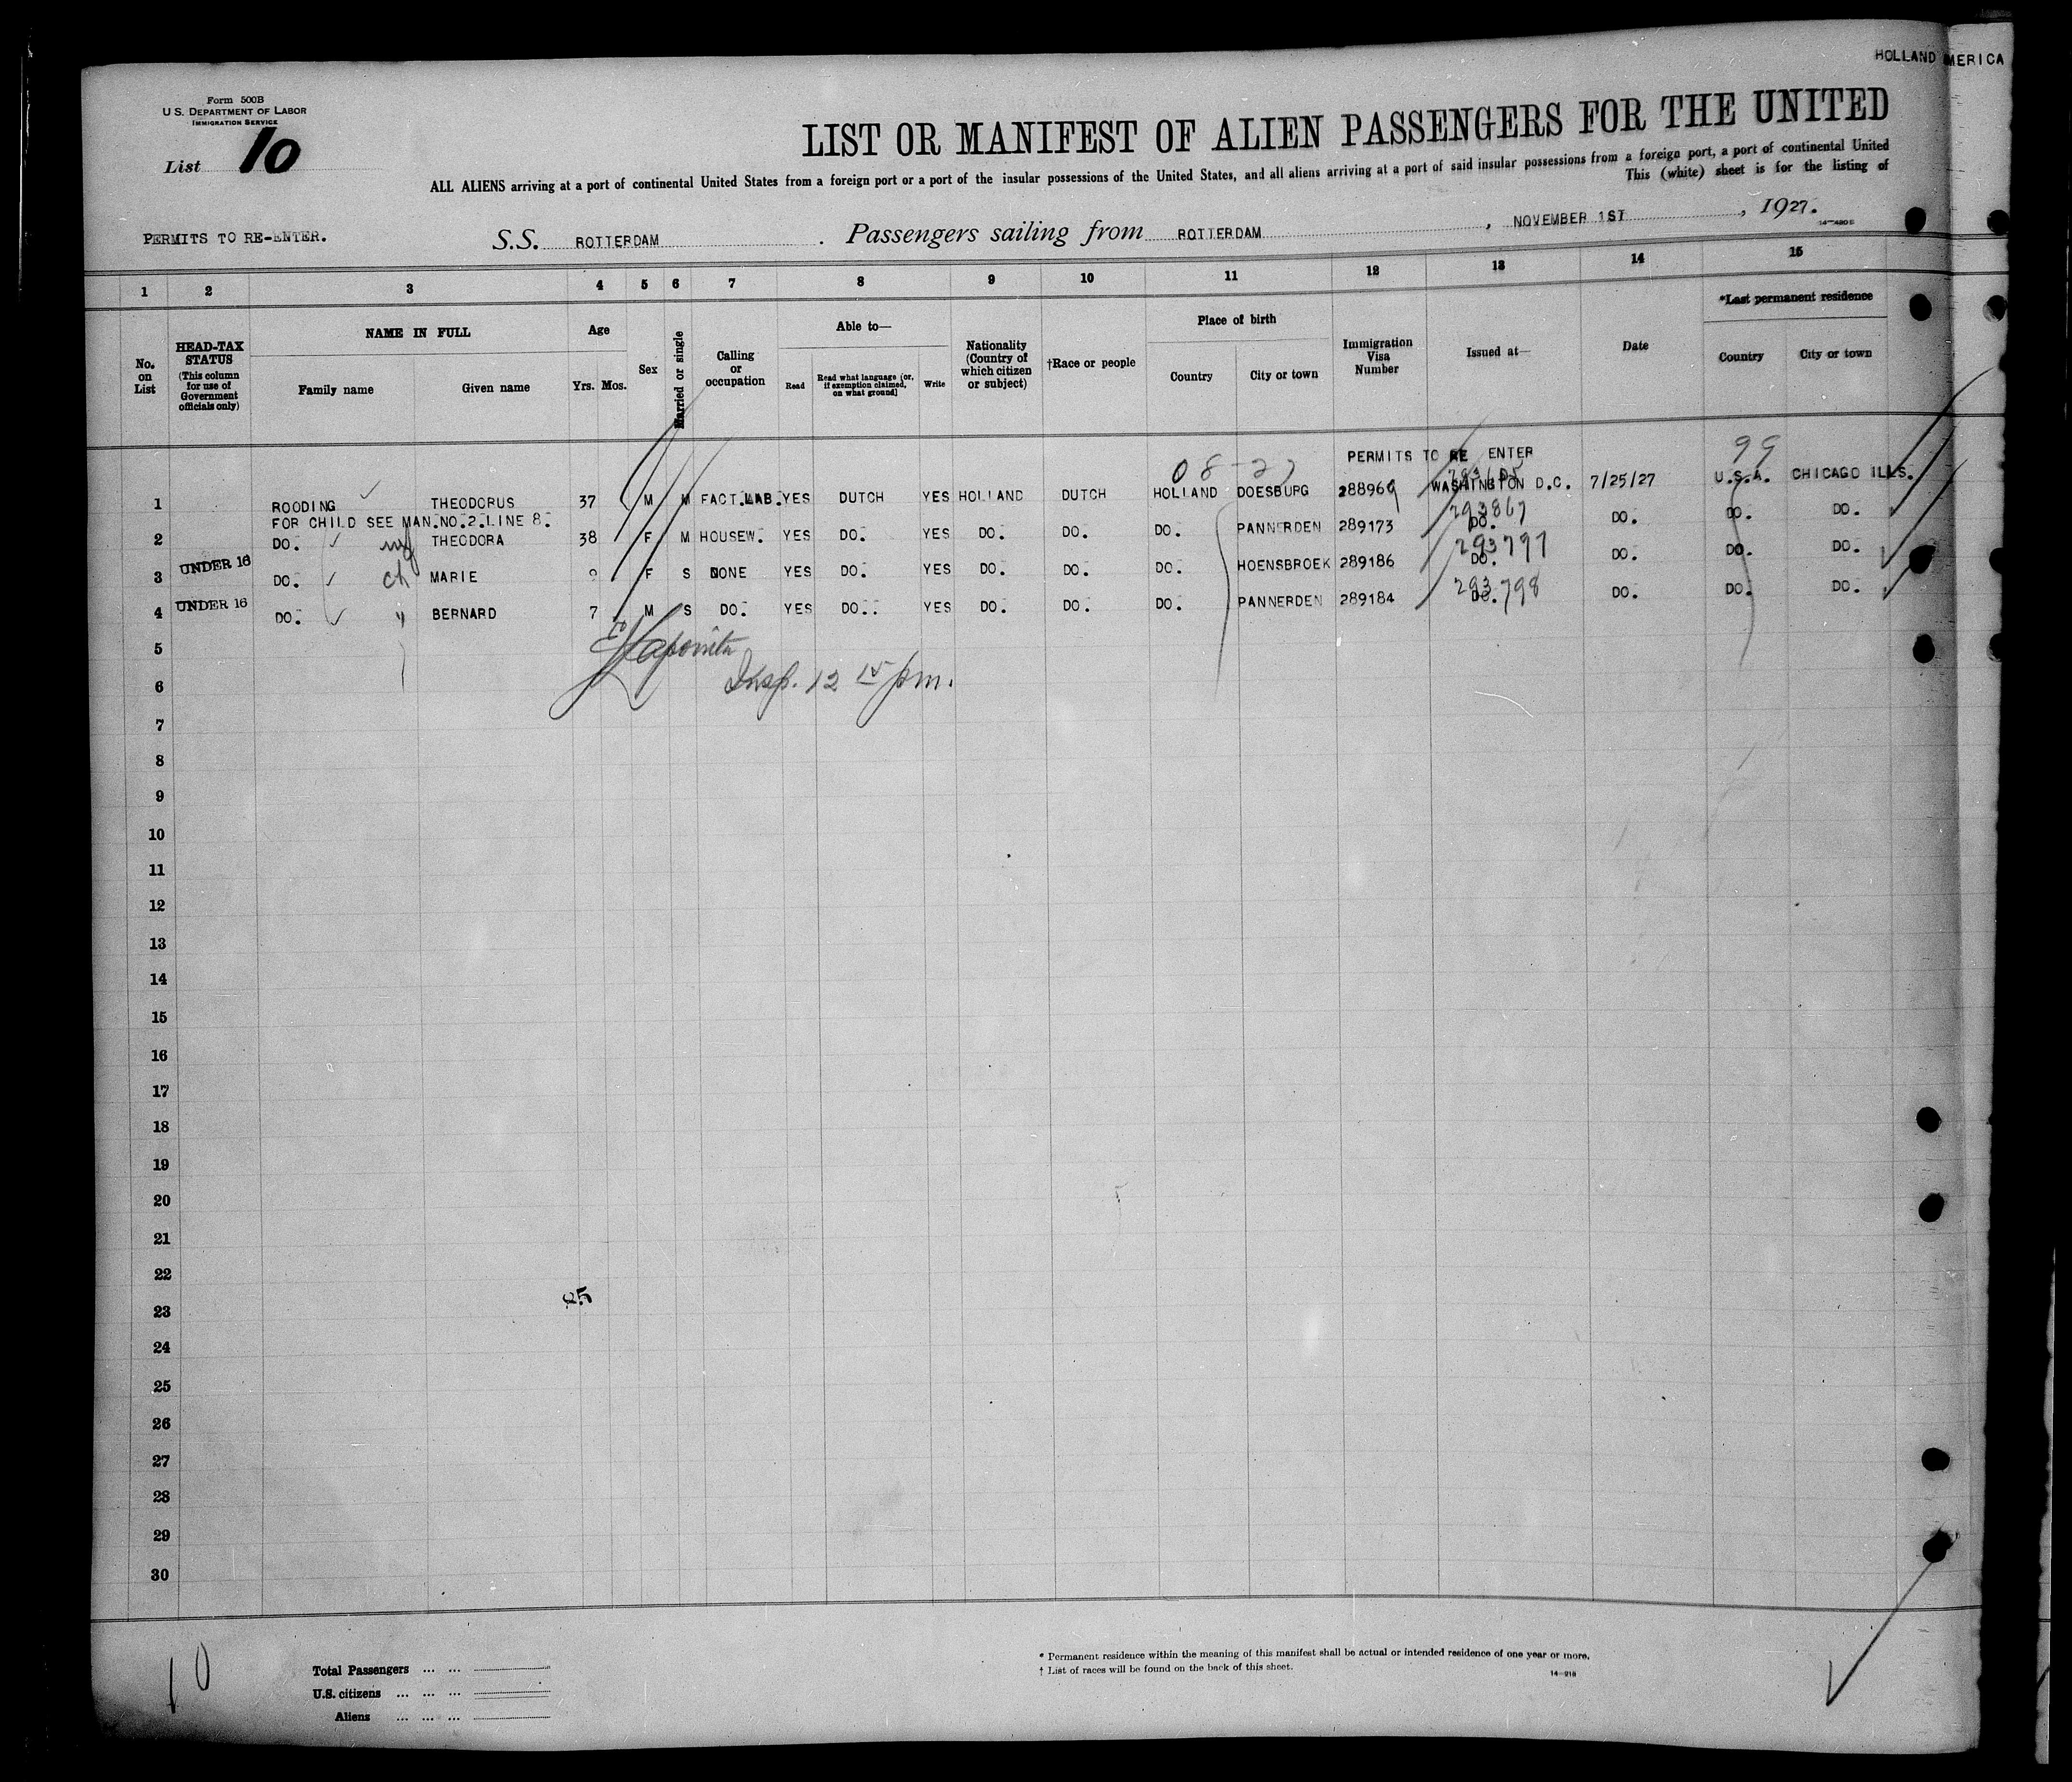 HOLLAND AMERICA
Form 500B
U. S. DEPARTMENT OF LABOR
IMMIGRATION SERVICE
List 10
LIST OR MANIFEST OF ALIEN PASSENGERS FOR THE UNITED
ALL ALIENS arriving at a port of continental United States from a foreign port or a port of the insular possessions of the United States, and all aliens arriving at a port of said insular possessions from a foreign port, a port of continental United
This (white) sheet is for the listing of
PERMITS TO RE-ENTER. S.S. ROTTERDAM . Passengers sailing from ROTTERDAM , NOVEMBER 1ST , 1927.
1 2 3 4 5 6 7 8 9 10 11 12 13 14 15
No. on List
HEAD-TAX STATUS (This column for use of Government officials only)
NAME IN FULL
Family name Given name
Age
Yrs. Mos.
Sex
Married or single
Calling or occupation
Able to—
Read
Read what language (or, if exemption claimed, on what ground)
Write
Nationality (Country of which citizen or subject)
†Race or people
Place of birth
Country City or town
Immigration Visa Number
Issued at—
Date
*Last permanent residence
Country City or town
PERMITS TO RE ENTER 99
1 ROODING THEODORUS 37 M M FACT.LAB. YES DUTCH YES HOLLAND DUTCH HOLLAND DOESBURG 288969 WASHINGTON D.C. 7/25/27 U.S.A. CHICAGO ILLS.
FOR CHILD SEE MAN.NO.2.LINE 8. 293867
2 DO. wf THEODORA 38 F M HOUSEW. YES DO. YES DO. DO. DO. PANNERDEN 289173 DO. DO. DO. DO.
293797
3 UNDER 16 DO. ch MARIE 9 F S NONE YES DO. YES DO. DO. DO. HOENSBROEK 289186 DO. DO. DO. DO.
293798
4 UNDER 16 DO. " BERNARD 7 M S DO. YES DO.. YES DO. DO. DO. PANNERDEN 289184 DO. DO. DO. DO.
5
6 Insp. 12 15 pm.
7
8
9
10
11
12
13
14
15
16
17
18
19
20
21
22
23
24
25
26
27
28
29
30
10
Total Passengers ... ...
U.S. citizens ... ... ...
Aliens ... ... ...
* Permanent residence within the meaning of this manifest shall be actual or intended residence of one year or more.
† List of races will be found on the back of this sheet.
14—218